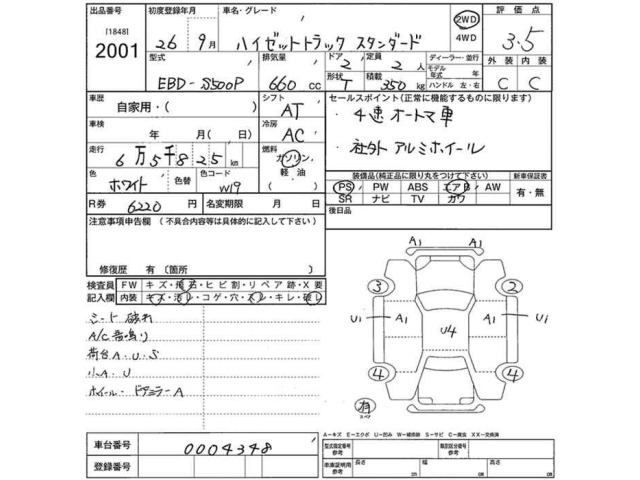 出品番号 初度登録年月 車名・グレード 2WD 4WD 評価点
[1848]
2001 26年 9月 ハイゼットトラック スタンダード 3.5
型式 排気量 ドア 2 定員 2人 ディーラー・並行 外装 内装
EBD-S500P 660cc 形状 T 積載 350kg モデル年式 年 ハンドル 左・右 C C
車歴 シフト セールスポイント(正常に機能するものに限ります)
自家用・( ) AT ・4速オートマ車
車検 冷房
年 月( 日) AC ・社外アルミホイール
走行 燃料
6万5千825km ガソリン 軽油 ( ) 装備品(純正品に限り丸をつけて下さい) 新車保証書
色 色替 色コード PS PW ABS エアB AW 有・無
ホワイト W19 SR ナビ TV カワ
R券 6220円 名変期限 月 日 後日品
注意事項申告欄 (不具合内容等は具体的に記入して下さい)
修復歴 有 〔箇所 〕
検査員記入欄 FW キズ・飛石・ヒビ割・リペア跡・X要
内装 キズ・汚レ・コゲ・穴・スレ・キレ・破レ
シート破れ
A/C音鳴り
荷台A.U.S
小A.U
ホイール・ドアミラーA
A1 A1
3 2
U1 A1 U4 A1 U1
4 4
有
スペア
A-キズ E-エクボ U-凹み W-補修跡 S-サビ C-腐食 XX-交換済
車台番号 0004348
登録番号
型式指定番号 参考 類別区分番号 参考
車車証明用 参考 長さ cm 幅 cm 高さ cm